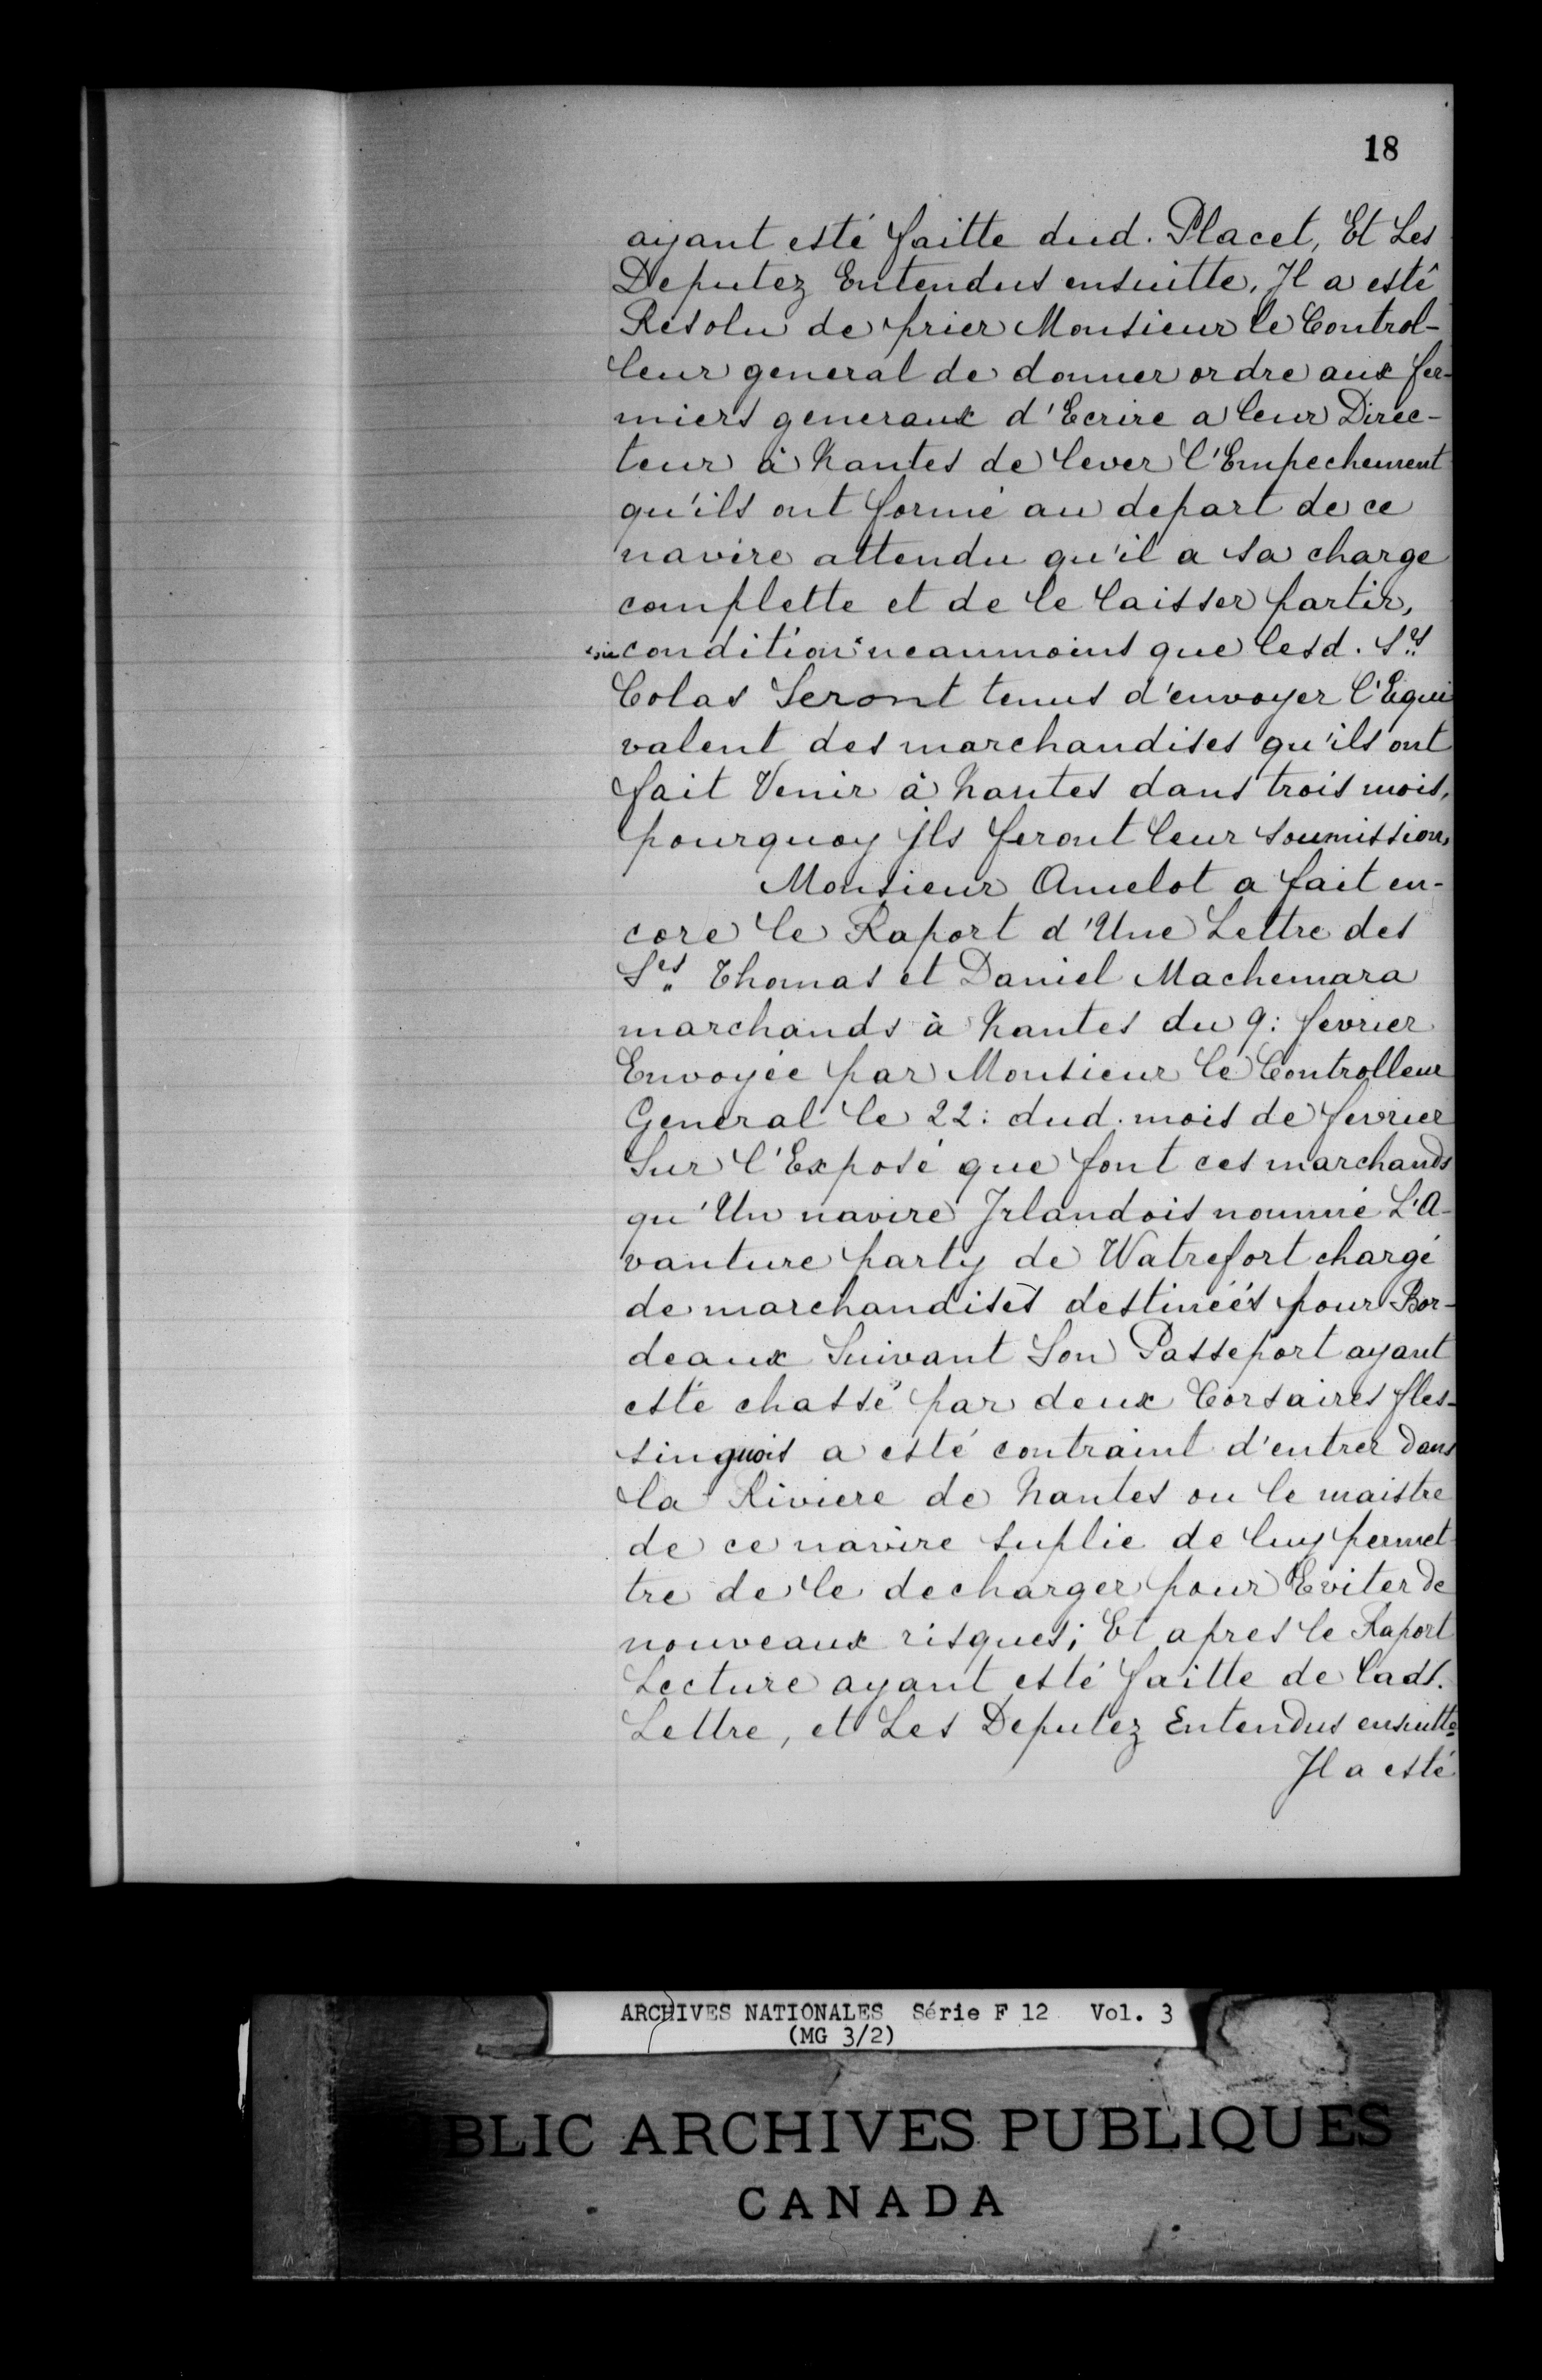 18
ayant esté faitte dud. Placet, Et Les
Deputez Entendus ensuitte, Il a esté
Resolu de prier Monsieur le Control-
leur general de donner ordre aux fer-
miers generaux d'Ecrire a leur Direc-
teur à Nantes de lever l'Empechement
qu'ils ont formé au depart de ce
navire attendu qu'il a sa charge
complette et de le laisser partir,
condition neanmoins que lesd. Srs
Colas Seront tenus d'envoyer l'Equi
valent des marchandises qu'ils ont
fait Venir à Nantes dans trois mois,
pourquoy Jls feront leur soumission,
Monsieur Amelot a fait en-
core le Raport d'Une Lettre des
Srs Thomas et Daniel Machemara
marchands à Nantes du 9: fevrier
Envoyée par Monsieur le Controlleur
General le 22: dud. mois de fevrier
Sur l'Exposé que font ces marchands
qu'Un navire Jrlandois nommé L'A-
vanture party de Watrefort chargé
de marchandises destinéés pour Bor-
deaux Suivant Son Passeport ayant
esté chassé par deux Corsaires fles-
singuois a esté contraint d'entrer dans
la Riviere de Nantes ou le maistre
de ce navire suplie de luy permet
tre de le decharger pour Eviter de
nouveaux risques; Et apres le Raport
Lecture ayant esté faitte de lads.
Lettre, et Les Deputez Entendus ensuitte
Il a esté
ARCHIVES NATIONALES Série F 12 Vol. 3
(MG 3/2)
BLIC ARCHIVES PUBLIQUES
CANADA